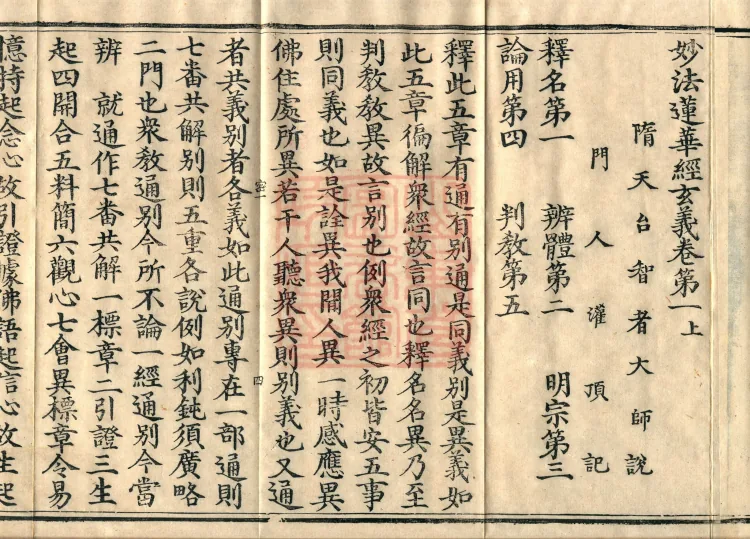 妙法蓮華經玄義卷第一上
隋天台智者大師說
門人灌頂記
釋名第一 辨體第二 明宗第三
論用第四 判教第五
釋此五章有通有別通是同義別是異義如
此五章徧解衆經故言同也釋名名異乃至
判教教異故言別也例衆經之初皆安五事
則同義也如是詮異我聞人異一時感應異
佛住處所異若干人聽衆異則別義也又通
者共義別者各義如此通別專在一部通則
七番共解別則五重各說例如利鈍須廣略
二門也衆教通別今所不論一經通別今當
辨 就通作七番共解一標章二引證三生
起四開合五料簡六觀心七會異標章令易
憶持起念心故引證據佛語起信心故生起